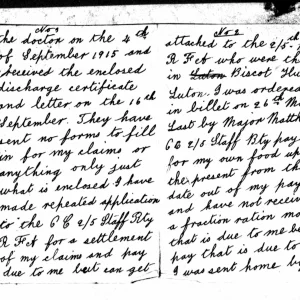 No 1
the doctor on the 4th
of September 1915 and
received the enclosed
discharge certificate
and letter on the 16th
September. They have
sent no forms to fill
in for my claims or
anything only just
what is enclosed I have
made repeated application
to the O C 2/5 Staff Bty
R F A for a settlement
of my claims and pay
due to me but can get
No 2
attached to the 2/5
R F A who were th
in Luton Biscot
Luton. I was ordere
in billet on 26th M
Last by Major Matth
O C 2/5 Staff Bty pay
for my own food up
the present from th
date out of my pay
and have not receiv
a fraction ration mo
that is due to me be
pay that is due to
I was sent home by